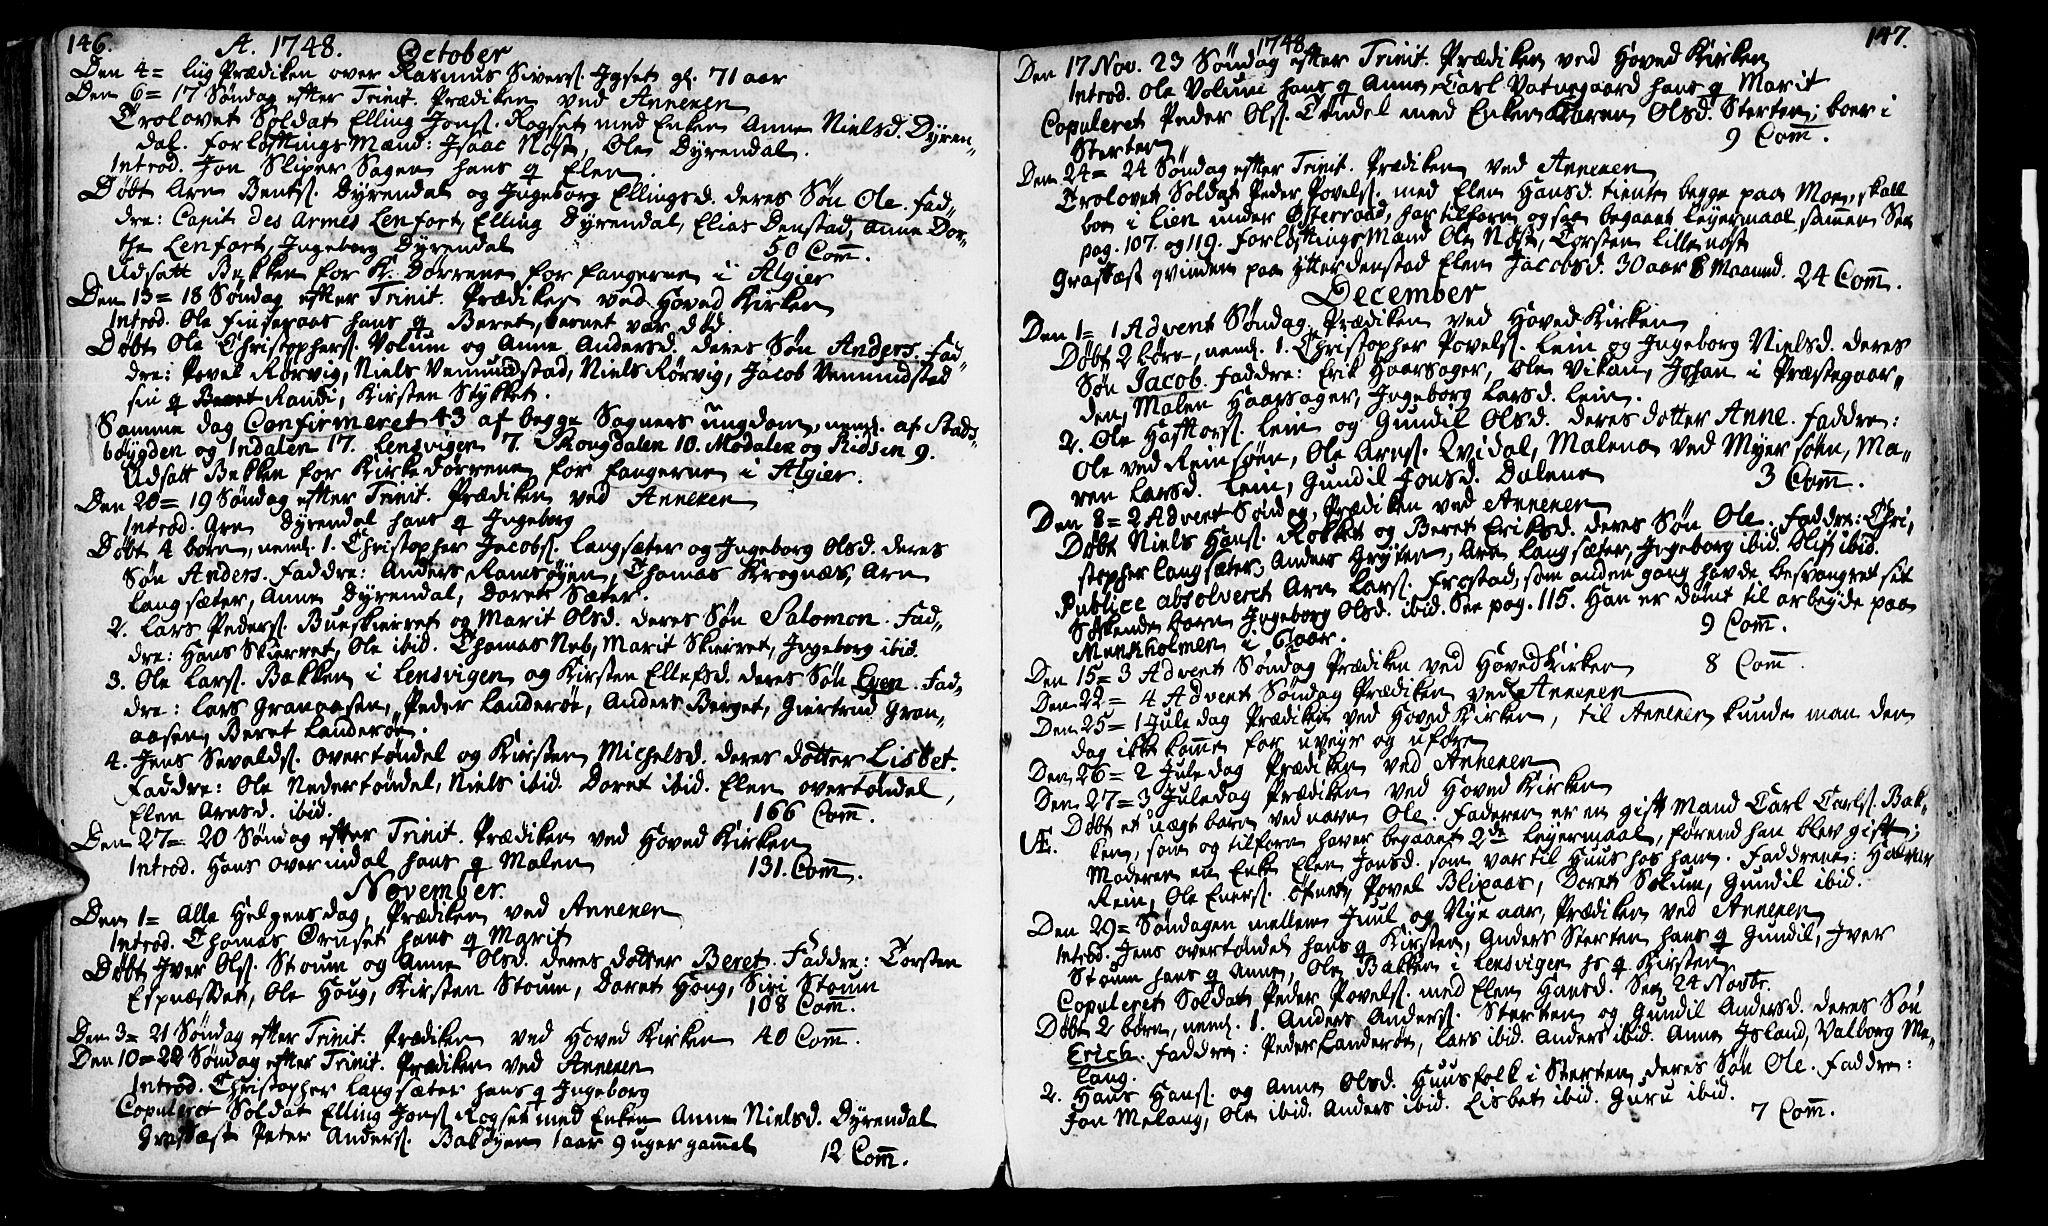 146. A. 1748. October
Den 4= Liig Prædiken over Rasmus Sivers. Igset gl. 71 aar
Den 6= 17 Søndag efter Trinit. Prædiken ved Annexen
Trolovet Soldat Elling Jons. Rogset med Enken Anne Nielsd. Dyren-
dal. Forløftings Mænd: Isaac Nøst, Ole Dyrendal.
Introd. Jon Sliper Sagen hans q Elen
Døbt Arn Bents. Dyrendal og Ingeborg Ellingsd. deres Søn Ole. Fad-
dre: Capit des Armes Lenfort, Elling Dyrendal, Elias Denstad, Anne Dor-
the Lenfort, Ingeborg Dyrendal 50 Com.
Udsatt Bekken for K. Dørrene for fangerne i Algier
Den 13= 18 Søndag efter Trinit. Prædiken ved Hoved Kirken
Introd. Ole Finseraas hans q Beret, barnet var død.
Døbt Ole Christophers. Volum og Anne Andersd. deres Søn Anders. Fad-
dre: Povel Rørvig, Niels Vemundstad, Niels Rørvig, Jacob Vemundstad
sin q Randi, Kirsten Stykket.
Samme dag Confirmeret 43 af begge Sogners ungdom, neml. af Stads-
bøygden og Indalen 17. Lensvigen 7. Skougdalen 10. Modalen og Ridsen 9.
Udsatt Bekken for Kirke dørrene for fangerne i Algier.
Den 20= 19 Søndag efter Trinit. Prædiken ved Annexen
Introd. Arn Dyrendal hans q Ingeborg
Døbt 4 børn, neml. 1. Christopher Jacobs. Langsæter og Ingeborg Olsd. deres
Søn Anders. Faddre: Anders Ramsøyen, Thomas Krognæs, Arn
Langsæter, Anne Dyrendal, Doret Sæter.
2. Lars Peders. Bueskierret og Marit Olsd. deres Søn Salomon. Fad-
dre: Hans Skierret, Ole ibid. Thomas Neb, Marit Skierret, Ingeborg ibid.
3. Ole Lars. Bakken i Lensvigen og Kirsten Ellefsd. deres Søn Even. Fad-
dre: Lars Granaasen, Peder Landerøe, Anders Berget, Giertrud Gran-
aasen, Beret Landerøe.
4. Jens Sevalds. Overtøndel og Kirsten Michelsd. deres dotter Lisbet.
Faddre: Ole Nedertøndel, Niels ibid. Doret ibid. Elen Overtøndel,
Elen Arnsd. ibid. 166 Com.
Den 27= 20 Søndag efter Trinit. Prædiken ved Hoved Kirken
Introd. Hans Overindal hans q Malen 131. Com.
November.
Den 1= Alle Helgens dag, Prædiken ved Annexen
Introd. Thomas Øruset hans q Marit
Døbt Iver Ols. Stoum og Anne Olsd. deres dotter Beret. Faddre: Torsten
Espnæsset, Ole Houg, Kirsten Stoum, Doret Houg, Siri Stoum
108 Com.
Den 3= 21 Søndag efter Trinit. Prædiken ved Hoved Kirken 40 Com.
Den 10= 22 Søndag efter Trinit. Prædiken ved Annexen
Introd. Christopher Langsæter hans q Ingeborg
Copuleret Soldat Elling Jons. Rogset med Enken Anne Nielsd. Dyrendal
Græsfæst Peter Anders. Bakøyen 1 aar 9 uger gammel 12 Com.
1748. 147.
Den 17 Nov. 23 Søndag efter Trinit. Prædiken ved Hoved Kirken
Introd. Ole Volum hans q Anne, Carl Vatnegaard hans q Marit
Copuleret Peder Ols. Tøndel med Enken Karen Olsd. Sterten; boer i
Sterten 9 Com.
Den 24= 24 Søndag efter Trinit. Prædiken ved Annexen
Trolovet Soldat Peder Povels. med Elen Hansd. tiente begge paa Moen, skall
boe i Lien under Østeraad, har tilforn ogsaa begaaet Leyermaal sammen See
pag. 107. og 119. Forløftings Mænd Ole Nøst, Torsten Lillenøst
Græsfæst qvinden paa Ytterdenstad Elen Jacobsd. 30 aar 8 Maaned. 24 Com.
December
Den 1= 1 Advent Søndag, Prædiken ved Hoved Kirken
Døbt 2 børn, neml. 1. Christopher Povels. Lein og Ingeborg Nielsd. deres
Søn Jacob. Faddre: Erik Haarsager, Ole Vikan, Johan i Præstegaar-
den, Malen Haarsager, Ingeborg Larsd. Lein.
2. Ole Haftors. Lein og Gundil Olsd. deres dotter Anne. Faddre:
Ole ved Reinsøen, Ole Arns. Qvidal, Malena ved Myersøen, Ma-
ren Larsd. Lein, Gundil Jonsd. Dalene 3 Com.
Den 8= 2 Advent Søndag, Prædiken ved Annexen
Døbt Niels Hans. Rokket og Beret Eriksd. deres Søn Ole. Faddre: Chri-
stopher Langsæter, Anders Gryten, Arn Langsæter, Ingeborg ibid. Olif ibid.
Publice absolveret Arn Lars. Frostad, som anden gang havde besvangret sit
Søskende barn Ingeborg Olsd. ibid. See pag. 115. Han er dømt til arbeyde paa
Munkholmen i 6 aar. 9 Com.
Den 15= 3 Advent Søndag Prædiken ved Hoved Kirken 8 Com.
Den 22= 4 Advent Søndag Prædiken ved Annexen
Den 25= 1 Jule dag Prædiken ved Hoved Kirken, til Annexen kunde man den
dag ikke komme for uveyr og uføre
Den 26= 2 Jule dag Prædiken ved Annexen
Den 27= 3 Juledag Prædiken ved Hoved Kirken
Æ. Døbt et uægt barn ved navn Ole. Faderen er en gift Mand Carl Carls. Bak-
ken, som og tilforn haver begaaet 2de Leyermaal, førend han blev gift;
Moderen en Enke Elen Jonsd. som var til Huus hos ham. Faddrene: Halvor
Rein, Ole Eners. Øfnet, Povel Blipaas, Doret Solum, Gundil ibid.
Den 29= Søndagen mellem Juul og Nye aar, Prædiken ved Annexen
Introd. Jens Overtøndel hans q Kirsten, Anders Sterten hans q Gundil, Iver
Stoum hans q Anne, Ole Bakken i Lensvigen hs q Kirsten
Copuleret Soldat Peder Povels. med Elen Hansd. See 24 Novbr.
Døbt 2 børn, neml. 1. Anders Anders. Sterten og Gundil Andersd. deres Søn
Erich. Faddre: Peder Landerøe, Lars ibid. Anders ibid. Anne Island, Valborg Me-
lang.
2. Hans Hans. og Anne Olsd. Huusfolk i Sterten deres Søn Ole. Faddre:
Jon Melang, Ole ibid. Anders ibid. Lisbet ibid. Guru ibid.
7 Com.